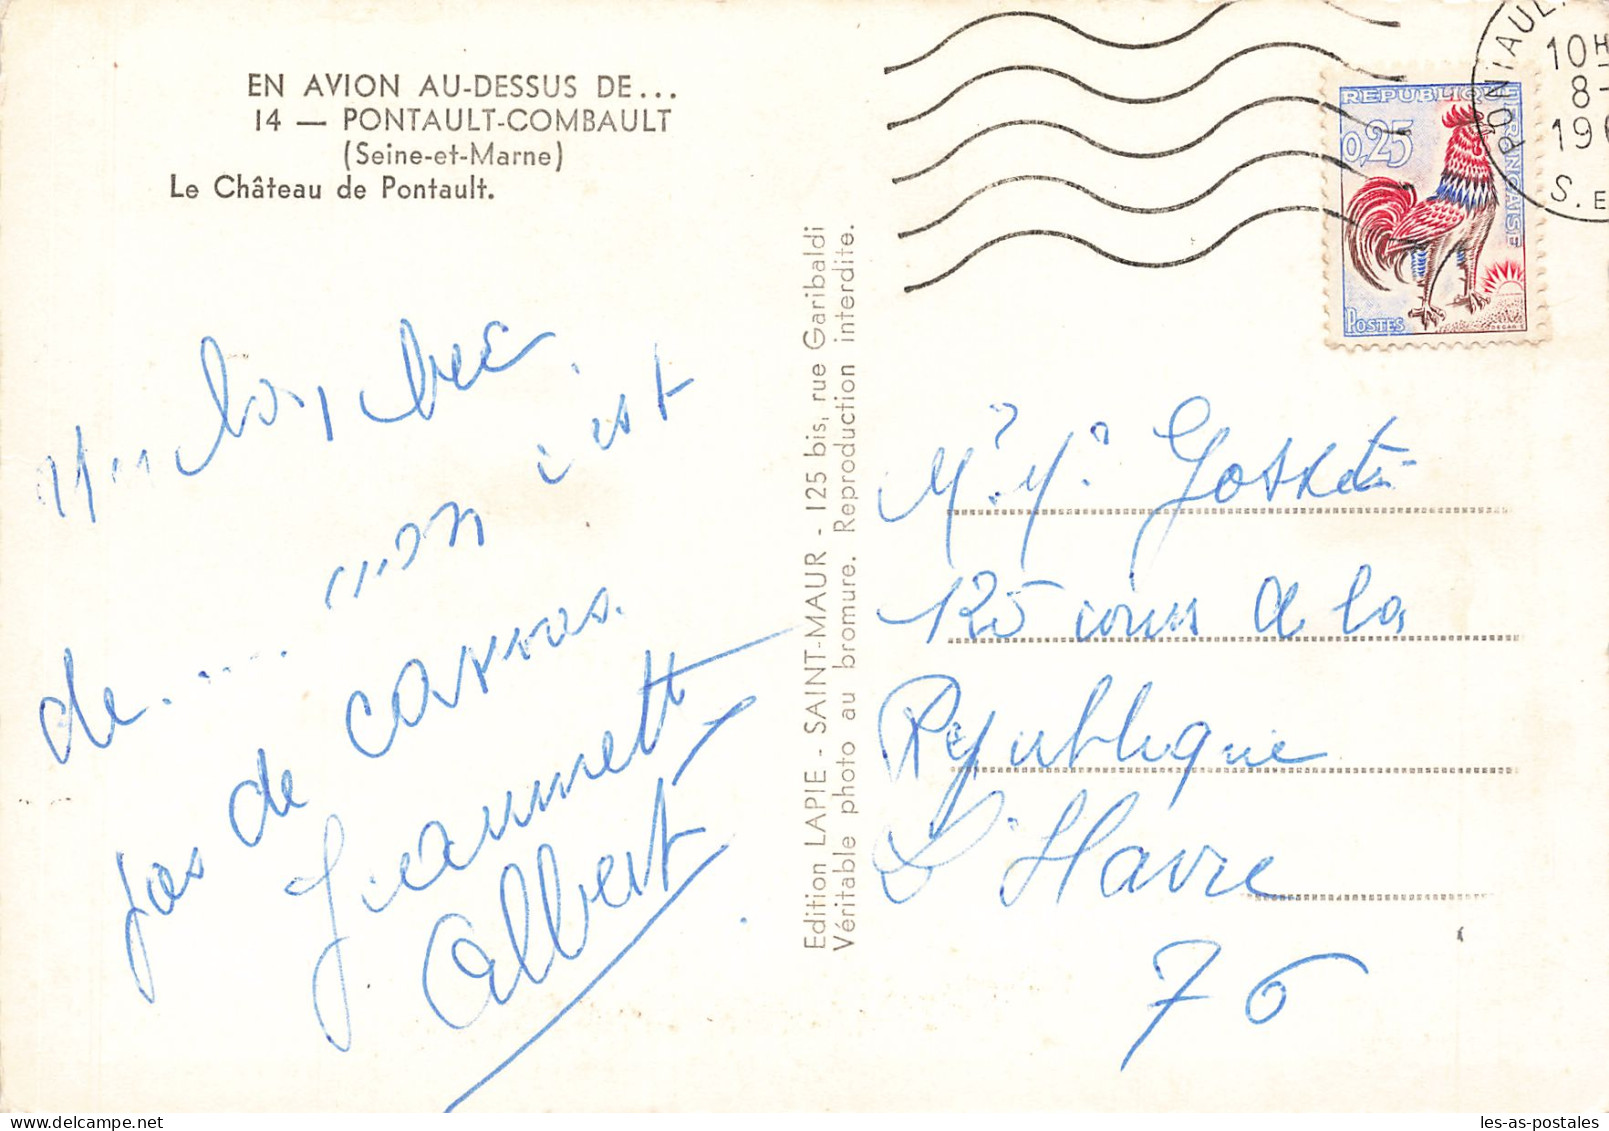 EN AVION AU-DESSUS DE...
14 — PONTAULT-COMBAULT
(Seine-et-Marne)
Le Château de Pontault.
de ..... mon c'est
pas de carros.
Jeannette
Albert
Edition LAPIE - SAINT-MAUR - 125 bis, rue Garibaldi
Véritable photo au bromure. Reproduction interdite.
10H
8-
19
S. E
REPUBLIQUE FRANÇAISE
0,25
POSTES
125 cours de la
République
Le Havre
76
les-as-postales